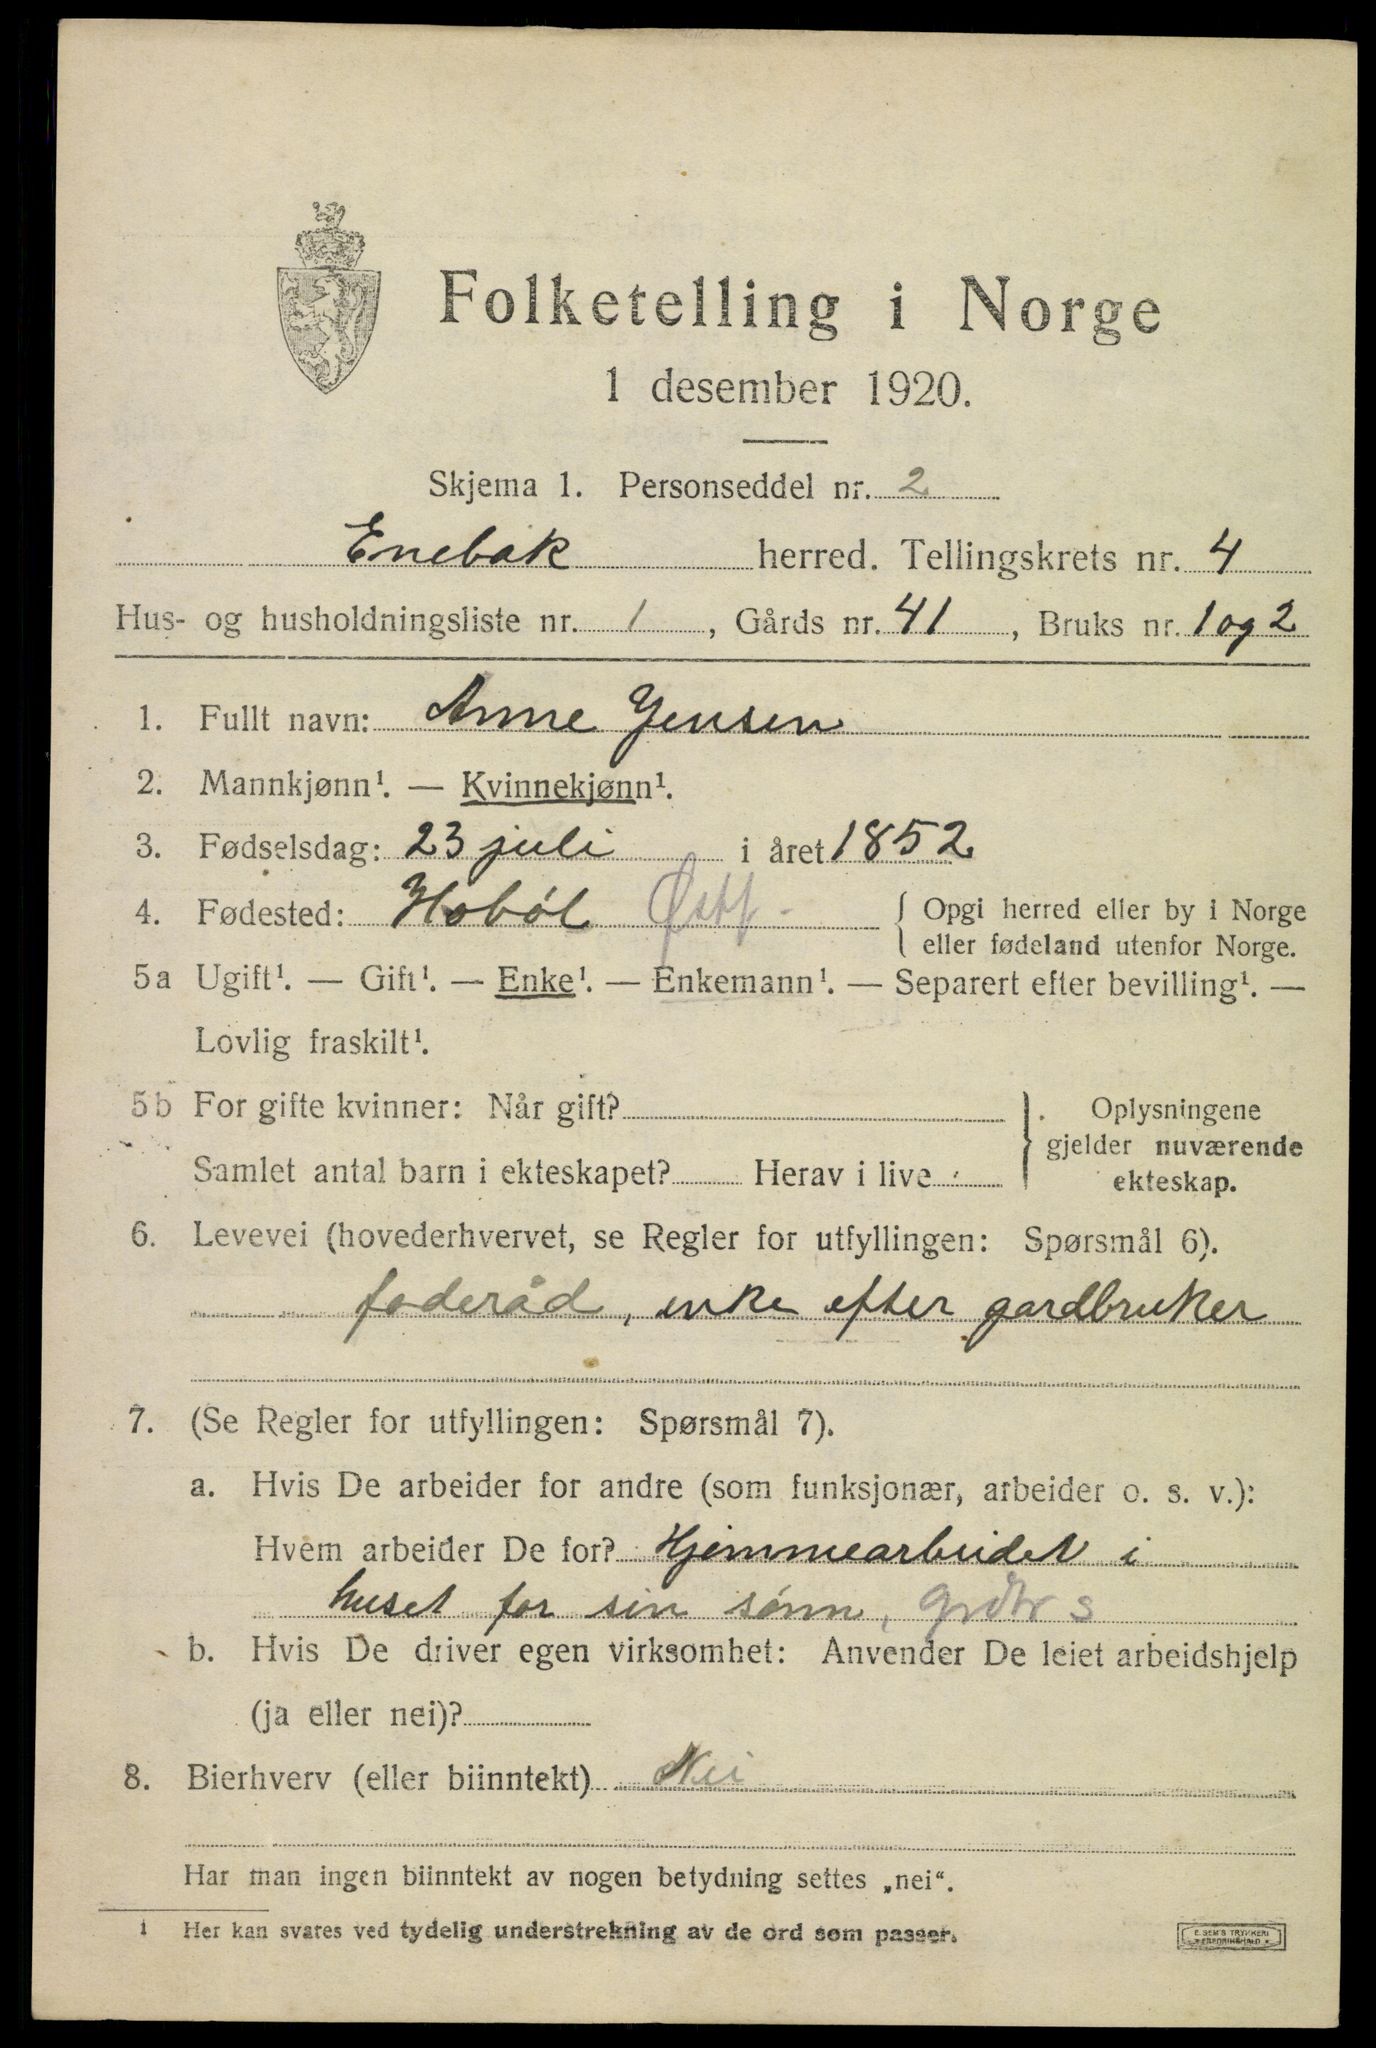 Folketelling i Norge
1 desember 1920.
Skjema 1. Personseddel nr. 2
Enebak herred. Tellingskrets nr. 4
Hus- og husholdningsliste nr. 1, Gårds nr. 41, Bruks nr. 1 og 2
1. Fullt navn: Anne Jensen
2. Mannkjønn¹. — Kvinnekjønn¹.
3. Fødselsdag: 23 juli i året 1852
4. Fødested: Hobøl Østf. { Opgi herred eller by i Norge
eller fødeland utenfor Norge.
5a Ugift¹. — Gift¹. — Enke¹. — Enkemann¹. — Separert efter bevilling¹. —
Lovlig fraskilt¹.
5b For gifte kvinner: Når gift? } Oplysningene
gjelder nuværende
Samlet antal barn i ekteskapet? Herav i live ekteskap.
6. Levevei (hovederhvervet, se Regler for utfyllingen: Spørsmål 6).
foderåd, enke efter gardbruker
7. (Se Regler for utfyllingen: Spørsmål 7).
a. Hvis De arbeider for andre (som funksjonær, arbeider o. s. v.):
Hvem arbeider De for? Hjemmearbeidet i
huset for sin sønn, grdbr s
b. Hvis De driver egen virksomhet: Anvender De leiet arbeidshjelp
(ja eller nei)?
8. Bierhverv (eller biinntekt) Nei
Har man ingen biinntekt av nogen betydning settes „nei“.
1 Her kan svares ved tydelig understrekning av de ord som passer.
E. SEM'S TRYKKERI
FREDRIKSHALD